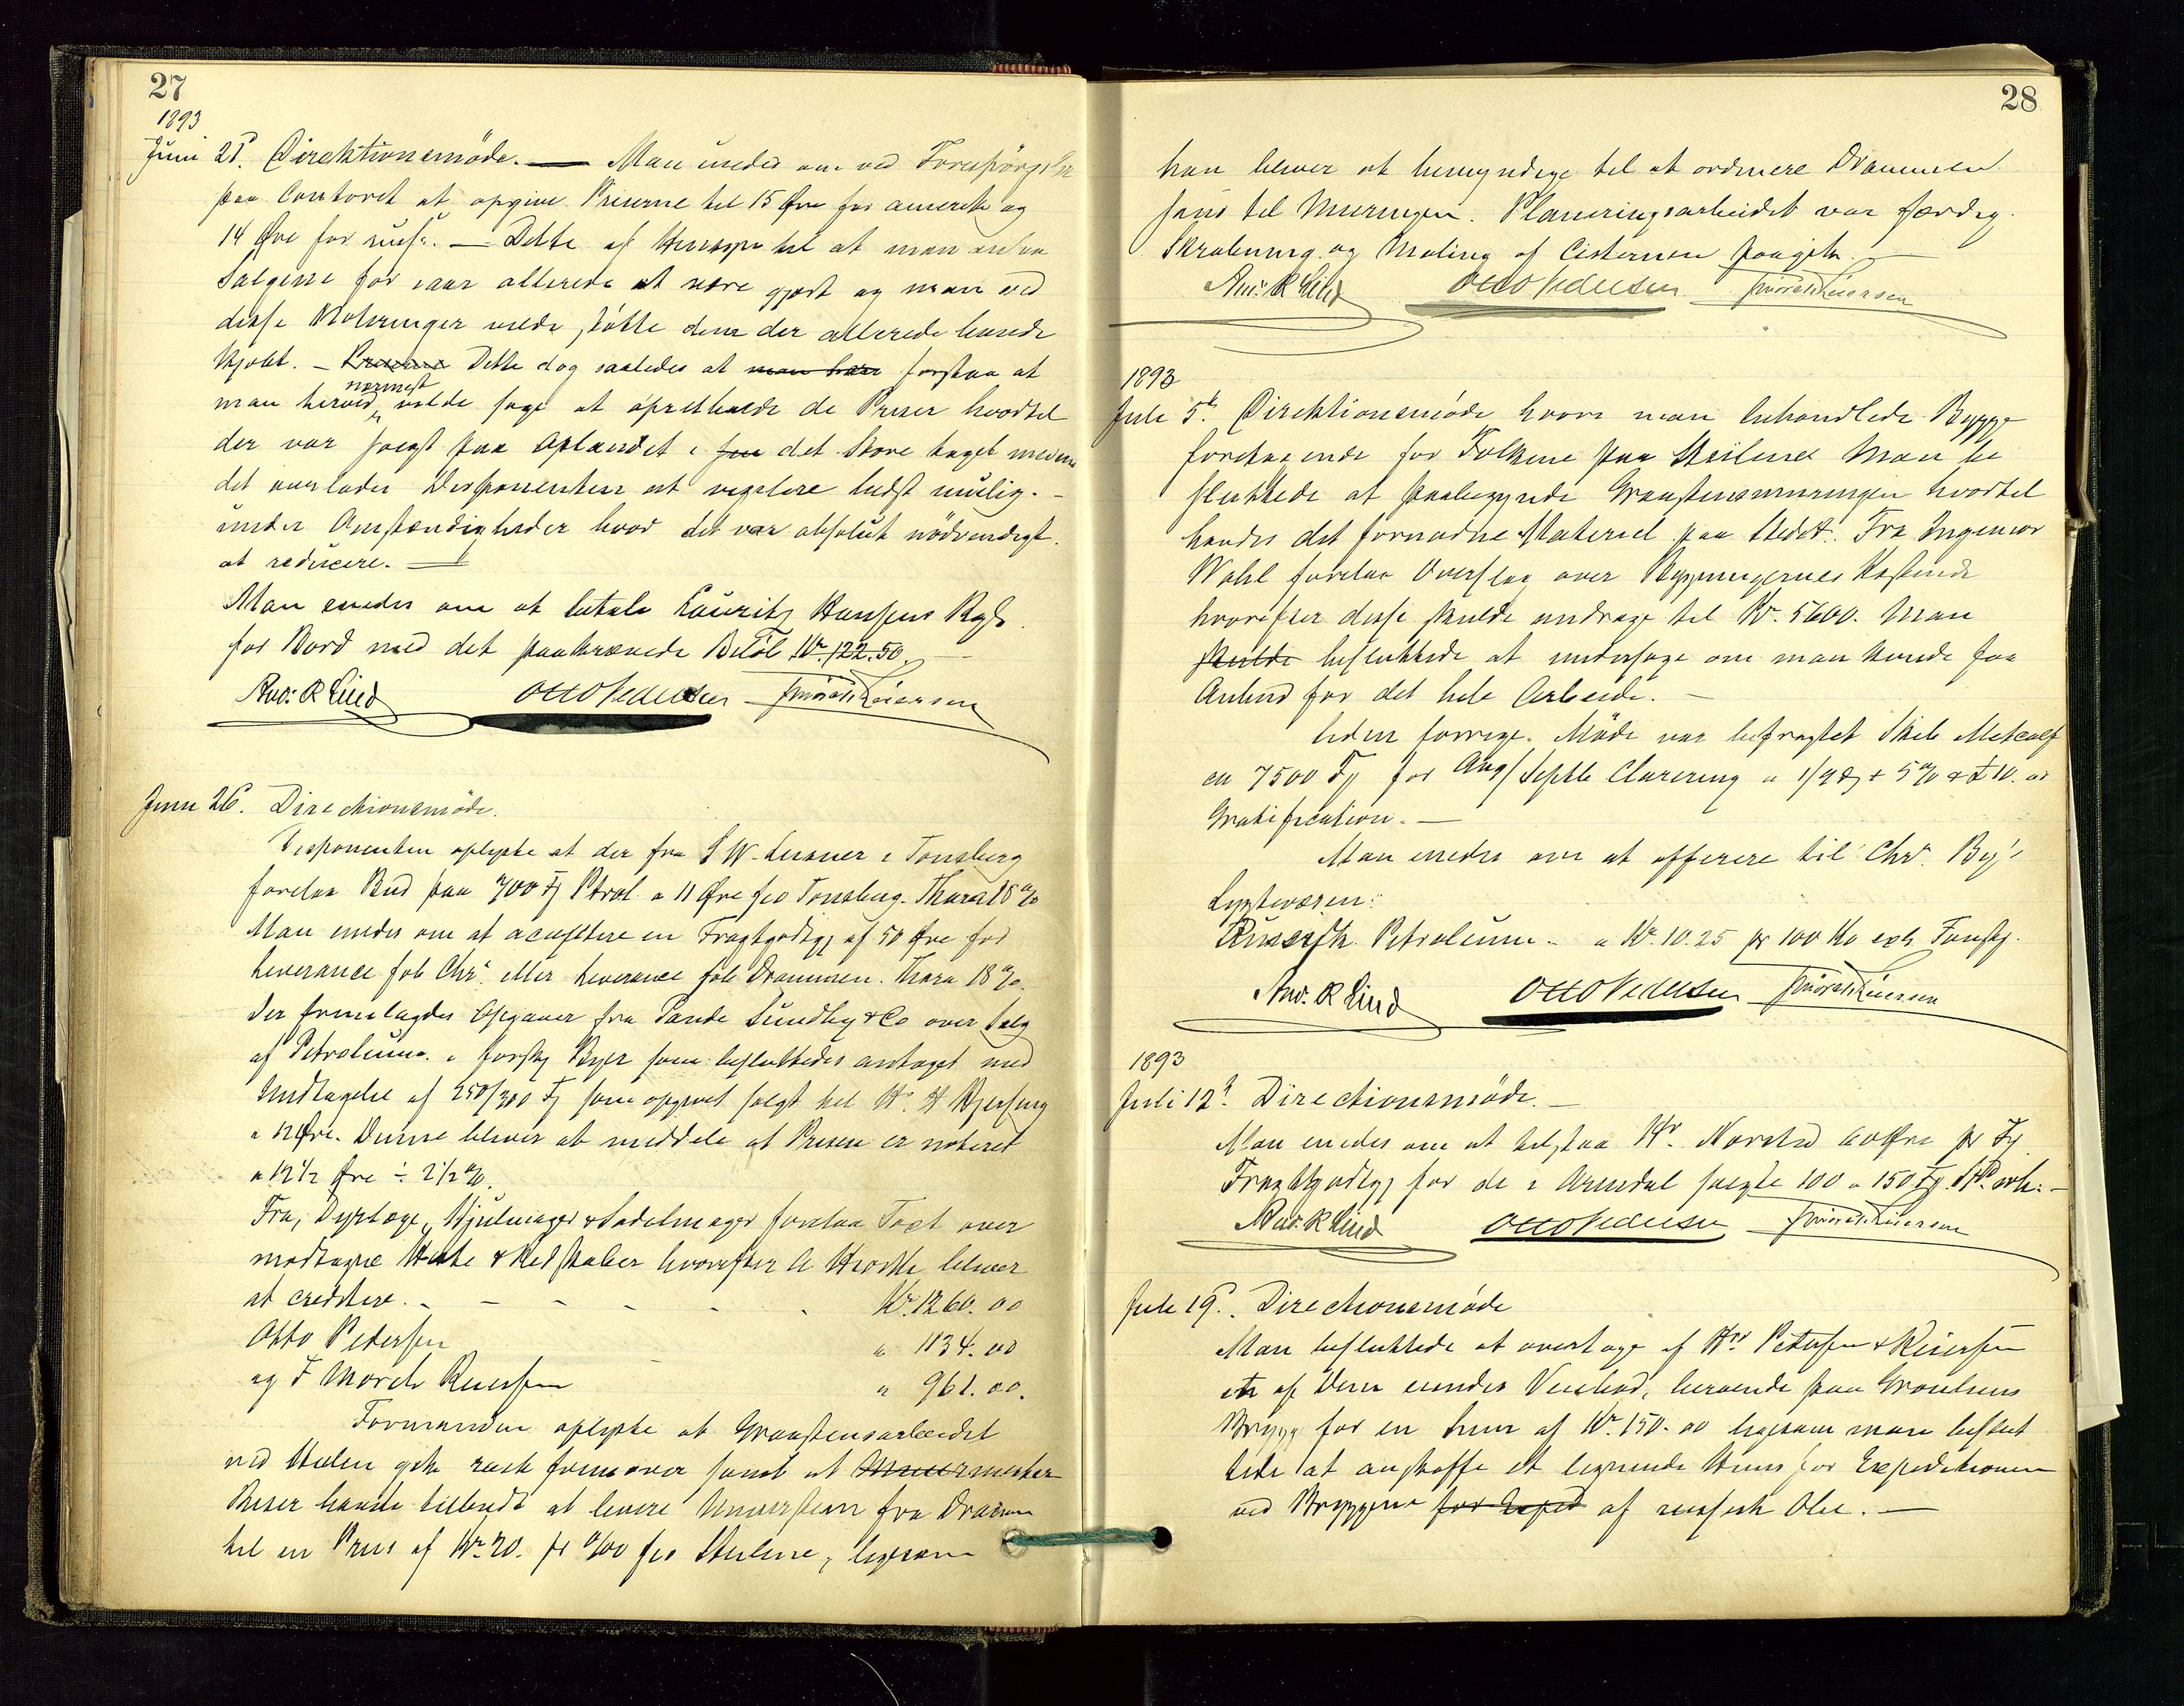 27
1893
Juni 21. Direktionsmöde. — Man enedes om ved Forespörgsler
paa Contoret at opgive Priserne til 15 Øre for amerik og
14 Øre for russ. — Dette af Hensyn til at man ansaa
Salgene for iaar allerede at være gjort og man ved
disse Noteringer vilde støtte dem der allerede havde
kjøbt. — Dette dog saaledes at forstaa at
man herved nærmest vilde søge at opretholde de Priser hvortil
der var solgt paa Oplandet i det store taget medens
det overlodes Disponenten at regulere bedst mulig. —
under Omstændigheder hvor det var absolut nödvendigt
at reducere. —
Man enedes om at betale Lauritz Hansens Regn.
for Bord med det paakrævede Belöb Kr. 122.50. —
And: R Lind Otto Pedersen F Mørch Reiersen
Juni 26. Directionsmöde.
Disponenten oplyste at der fra S W. i Tonsberg
forelaa Bud paa 700 Fj Petrol. a 11 Øre fco Tonsberg. Thara 18 %
Man enedes om at acceptere en Fragtgodtg af 50 Øre for
Leverance fob Chra eller Leverance fob Drammen. Thara 18 %.
Der fremlagdes Opgaver fra Sande Sundby & Co over Salg
af Petroleum i forskj Byer som besluttedes antaget med
Undtagelse af 250/300 Fj som opgivet solgt til Hr. H
a 12 Øre. Denne bliver at meddele at Prisen er noteret
a 12 1/2 Øre ÷ 2 1/2 %.
Fra, Dyrlæge, Hjulmager & Sadelmager forelaa Taxt over
modtagne Heste & Redskaber hvorefter A bliver
at creditere. - - - - - - Kr. 1260.00
Otto Pedersen " 1134.00
og F Mørch Reiersen " 961.00.
Formanden oplyste at Graastensarbeidet
ved Stalen gik rask fremover samt at Muurmester
havde tilbudt at levere Muursten fra Dramm
til en Pris af Kr. 20. pr %00 fco Steilene, ligesom
28
han bliver at bemyndige til at ordinere Drammen
til Muringen. Planeringsarbeidet var færdig.
Skrabning og Maling af Cisternen paagik. —
And: R Lind Otto Pedersen F Mørch Reiersen
1893
Juli 5t. Direktionsmöde hvori man behandlede Bygge
foretagende for Folkene paa Steilene Man be
sluttede at paabegynde Graastensmuringen hvortil
havdes det fornødne Materiel paa Stedet. Fra Ingeniør
Wahl forelaa Overslag over Bygningernes Kostende
hvorefter disse skulde andrage til Kr. 5600. Man
skulde besluttede at undersøge om man kunde faa
Anbud for det hele Arbeide. —
Siden forrige Möde var befragtet Skib Metcalf
ca 7500 Fj for Aug/Septb Clarering a 1/9 & + 5% & £10. as
Gratification. —
Man enedes om at offerere til Chra. By's
Lygtevæsen:
Russisk Petroleum — a Kr. 10.25 pr 100 Ko exk Fustg.
And. R Lind Otto Pedersen F Mørch Reiersen
1893
Juli 12t. Directionsmöde. —
Man enedes om at tilstaa Hr. Norsted 60 Øre pr Fj
Fragtgodtg for de i Arendal solgte 100 a 150 Fj.
And: R Lind Otto Pedersen F Mørch Reiersen
Juli 19. Directionsmöde
Man besluttede at overtage af Hrr Pedersen & Reiersen
et af dem eiendes Veiebod, beroende paa Grønliens
Brygg for en Sum af Kr. 150.00 ligesom man beslut
tede at anskaffe et lignende Huus for Expeditionen
ved Bryggene for Exped af russisk Olie. —